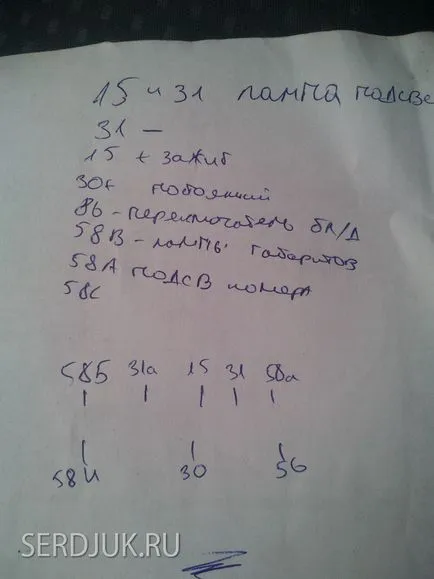 15 и 31 лампа подсве
31 —
15 + зажиг
30+ постоянный
86 - переключатель бл/д
58В - лампы габаритов
58А подсв номера
58С
58Б 31а 15 31 58а
58И 30 56
SERDJUK.RU